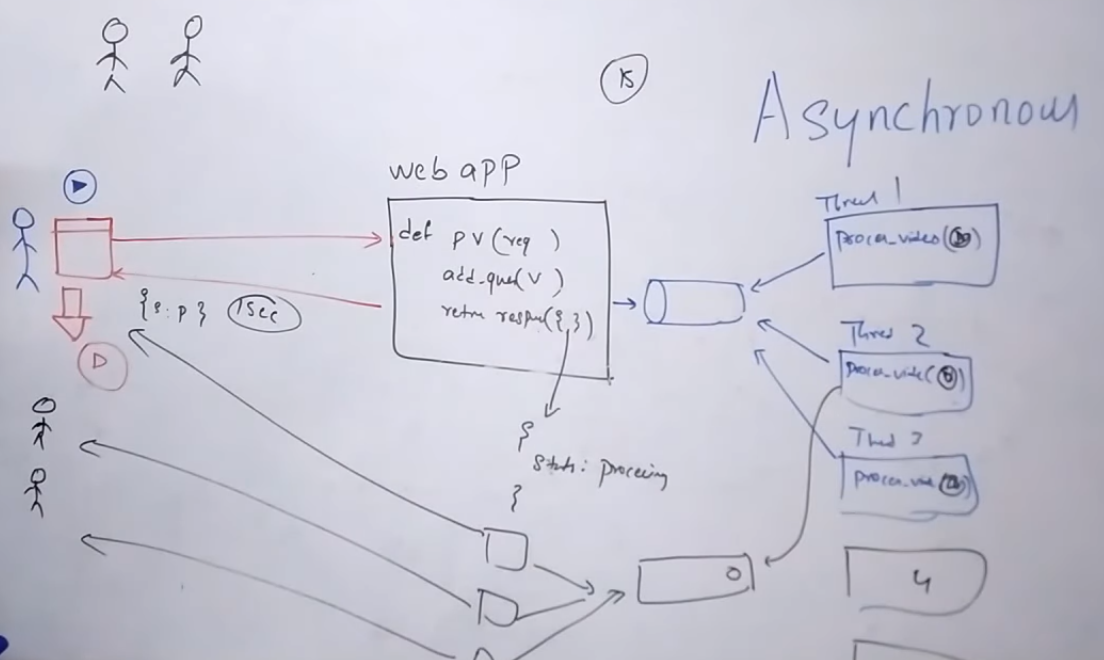 15
Asynchronous
web app
def pv(req )
add-que(v )
retrn respne({ })
{s:p} 1sec
D
{
Stats: Processing
}
Thred 1
Proces_video( )
Thred 2
Proces_vide( )
Thred 3
Proces_vide( )
4